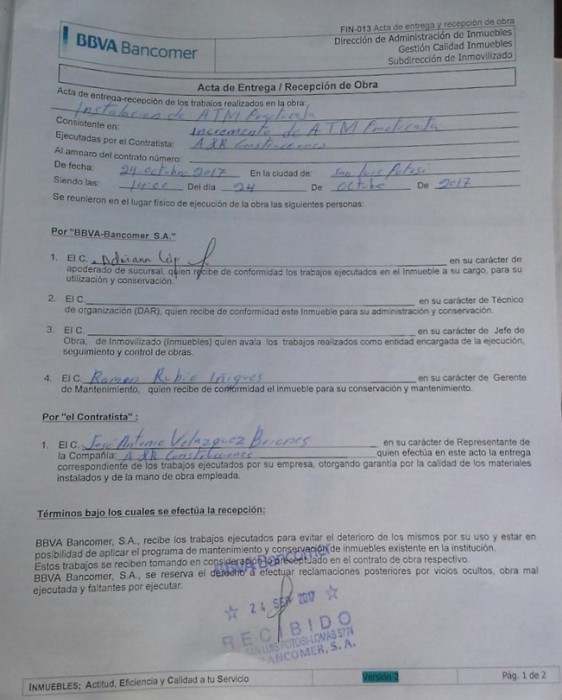 BBVA Bancomer
FIN-013 Acta de entrega y recepción de obra
Dirección de Administración de Inmuebles
Gestión Calidad Inmuebles
Subdirección de Inmovilizado
Acta de Entrega / Recepción de Obra
Acta de entrega-recepción de los trabajos realizados en la obra:
Instalacion de ATM
Consistente en: Incremento de ATM
Ejecutadas por el Contratista: A&R Construcciones
Al amparo del contrato número:
De fecha: 24 octubre 2017 En la ciudad de: San Luis Potosi
Siendo las: Del día 24 De octubre De 2017
Se reunieron en el lugar físico de ejecución de la obra las siguientes personas:
Por "BBVA-Bancomer S.A."
1. El C. Adriana en su carácter de
apoderado de sucursal, quien recibe de conformidad los trabajos ejecutados en el Inmueble a su cargo, para su
utilización y conservación.
2. El C. en su carácter de Técnico
de organización (DAR), quien recibe de conformidad este Inmueble para su administración y conservación.
3. El C. en su carácter de Jefe de
Obra, de Inmovilizado (Inmuebles) quien avala los trabajos realizados como entidad encargada de la ejecución,
seguimiento y control de obras.
4. El C. Ramon Rubio Iñiguez en su carácter de Gerente
de Mantenimiento, quien recibe de conformidad el inmueble para su conservación y mantenimiento.
Por "el Contratista":
1. El C. José Antonio Velazquez Briones en su carácter de Representante de
la Compañía: A&R Construcciones quien efectúa en este acto la entrega
correspondiente de los trabajos ejecutados por su empresa, otorgando garantía por la calidad de los materiales
instalados y de la mano de obra empleada.
Términos bajo los cuales se efectúa la recepción:
BBVA Bancomer, S.A., recibe los trabajos ejecutados para evitar el deterioro de los mismos por su uso y estar en
posibilidad de aplicar el programa de mantenimiento y conservación de inmuebles existente en la institución.
Estos trabajos se reciben tomando en consideración lo preceptuado en el contrato de obra respectivo.
BBVA Bancomer, S.A., se reserva el derecho a efectuar reclamaciones posteriores por vicios ocultos, obra mal
ejecutada y faltantes por ejecutar.
BBVA Bancomer
☆ 24 SEP 2017 ☆
RECIBIDO
SAN LUIS POTOSI-LOMAS 5771
BANCOMER, S.A.
INMUEBLES; Actitud, Eficiencia y Calidad a tu Servicio
Versión 2
Pág. 1 de 2